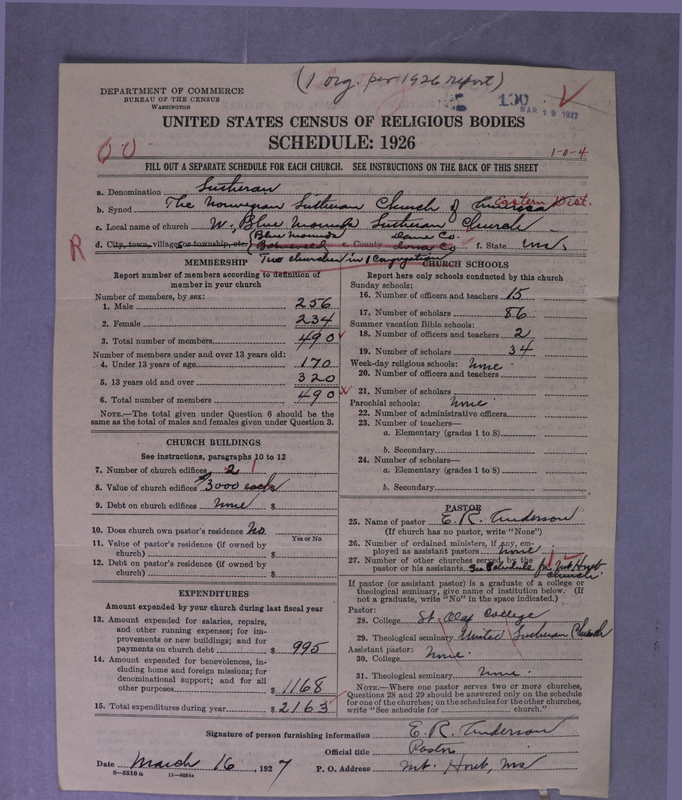 (1 org. per 1926 report)
DEPARTMENT OF COMMERCE
BUREAU OF THE CENSUS
WASHINGTON
130
MAR 19 1927
UNITED STATES CENSUS OF RELIGIOUS BODIES
SCHEDULE: 1926
1-0-4
FILL OUT A SEPARATE SCHEDULE FOR EACH CHURCH. SEE INSTRUCTIONS ON THE BACK OF THIS SHEET
a. Denomination Lutheran
b. Synod The Norwegian Lutheran Church of America Eastern Dist.
c. Local name of church W. Blue Mounds Lutheran Church
d. City, town, village, or township, etc. Blue Mounds e. County Dane Co. Iowa Co f. State Wis,
R
Two churches in 1 Congregation
MEMBERSHIP
Report number of members according to definition of
member in your church
Number of members, by sex:
1. Male 256
2. Female 234
3. Total number of members 490
Number of members under and over 13 years old:
4. Under 13 years of age 170
5. 13 years old and over 320
6. Total number of members 490
NOTE.—The total given under Question 6 should be the
same as the total of males and females given under Question 3.
CHURCH BUILDINGS
See instructions, paragraphs 10 to 12
7. Number of church edifices 2 1
8. Value of church edifices $3000 each
9. Debt on church edifices none $
10. Does church own pastor's residence? No
Yes or No
11. Value of pastor's residence (if owned by
church) $
12. Debt on pastor's residence (if owned by
church) $
EXPENDITURES
Amount expended by your church during last fiscal year
13. Amount expended for salaries, repairs,
and other running expenses; for im-
provements or new buildings; and for
payments on church debt $ 995
14. Amount expended for benevolences, in-
cluding home and foreign missions; for
denominational support; and for all
other purposes $ 1168
15. Total expenditures during year $ 2163
CHURCH SCHOOLS
Report here only schools conducted by this church
Sunday schools:
16. Number of officers and teachers 15
17. Number of scholars 86
Summer vacation Bible schools:
18. Number of officers and teachers 2
19. Number of scholars 34
Week-day religious schools: None.
20. Number of officers and teachers
21. Number of scholars
Parochial schools: None.
22. Number of administrative officers
23. Number of teachers—
a. Elementary (grades 1 to 8)
b. Secondary
24. Number of scholars—
a. Elementary (grades 1 to 8)
b. Secondary
PASTOR
25. Name of pastor E. R. Anderson
(If church has no pastor, write "None")
26. Number of ordained ministers, if any, em-
ployed as assistant pastors none
27. Number of other churches served by the
pastor or his assistants See Schedule for Mt Horeb
church.
If pastor (or assistant pastor) is a graduate of a college or
theological seminary, give name of institution below. (If
not a graduate, write "No" in the space indicated.)
Pastor:
28. College St. Olaf College
29. Theological seminary United Lutheran Church
Assistant pastor:
30. College None.
31. Theological seminary None.
NOTE.—Where one pastor serves two or more churches,
Questions 28 and 29 should be answered only on the schedule
for one of the churches; on the schedules for the other churches,
write "See schedule for church."
Signature of person furnishing information E. R. Anderson
Official title Pastor
Date March 16, 1927 P. O. Address Mt. Horeb, Wis
8-5518a 11-9034